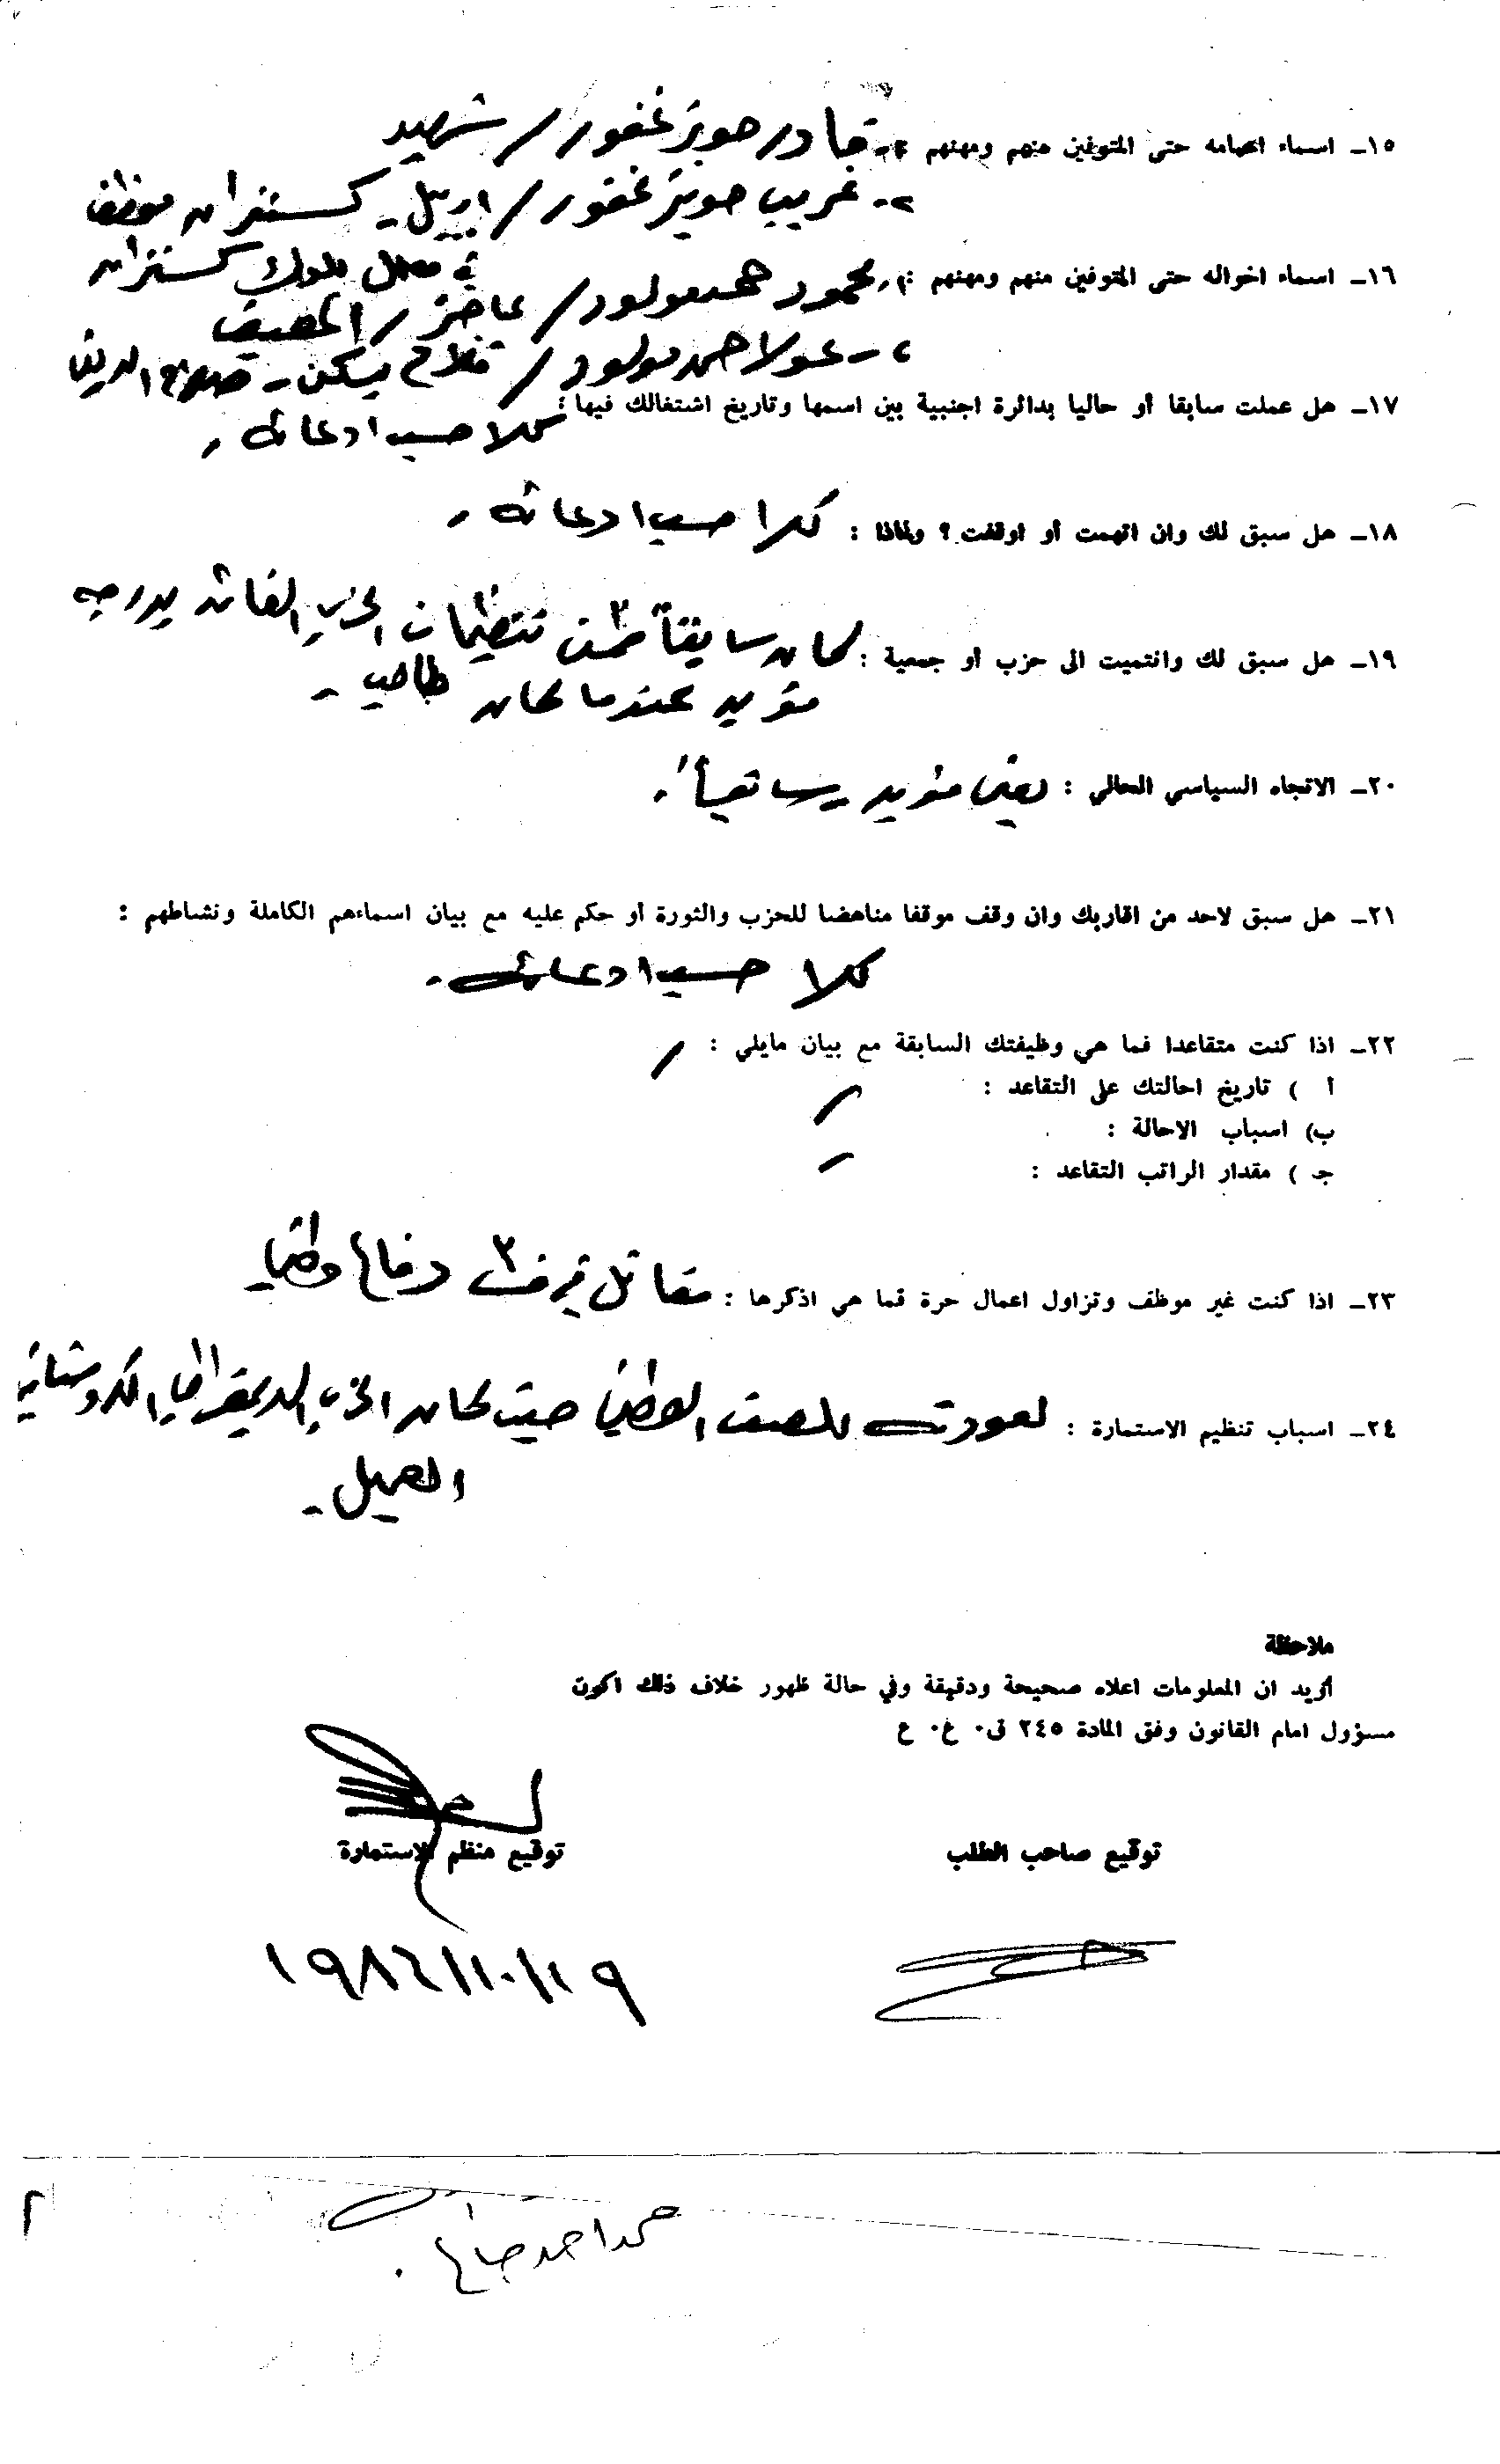 ١٥ـ اسماء اعمامه حتى المتوفين منهم ومهنهم : ١ـ قادر حويز غفور / شهيد
٢ـ غريب حويز غفور / اربيل ـ كسنزان موظف
في معمل كسنزان
١٦ـ اسماء اخواله حتى المتوفين منهم ومهنهم : ١ـ محمود حمد مولود / عاجز / المصيف
٢ـ عولا حمد مولود / فلاح يسكن ـ صلاح الدين
١٧ـ هل عملت سابقا أو حاليا بدائرة اجنبية بين اسمها وتاريخ اشتغالك فيها : كلا حسب ادعائه
١٨ـ هل سبق لك وان اتهمت أو اوقفت ؟ ولماذا : كلا حسب ادعائه
١٩ـ هل سبق لك وانتميت الى حزب أو جمعية : كان سابقاً ضمن تنظيمات الحزب القائد بدرجة
مؤيد عندما كان طالب ـ
٢٠ـ الاتجاه السياسي الحالي : بعثي مؤيد
٢١ـ هل سبق لاحد من اقاربك وان وقف موقفا مناهضا للحزب والثورة أو حكم عليه مع بيان اسماءهم الكاملة ونشاطهم :
كلا حسب ادعائه ـ
٢٢ـ اذا كنت متقاعدا فما هي وظيفتك السابقة مع بيان مايلي : /
أ ) تاريخ احالتك على التقاعد : /
ب) اسباب الاحالة :
جـ ) مقدار الراتب التقاعد : /
٢٣ـ اذا كنت غير موظف وتزاول اعمال حرة فما هي اذكرها : مقاتل في ف٣ دفاع وطني
٢٤ـ اسباب تنظيم الاستمارة : لعودته للصف الوطني حيث كان الحزب الديمقراطي الكردستاني
العميل ـ
ملاحظة
أؤيد ان المعلومات اعلاه صحيحة ودقيقة وفي حالة ظهور خلاف ذلك اكون
مسؤول امام القانون وفق المادة ٢٤٥ ق٠ ع٠ ع
توقيع صاحب الطلب
توقيع منظم الاستمارة
١٩٨٦/١٠/١٩
حمد احمد